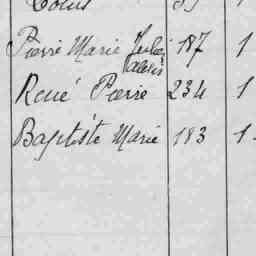 Pierre Marie Julien 187 1
alexis
René Pierre 234 1
Baptiste Marie 183 1